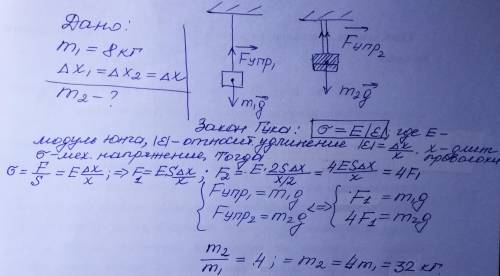 Дано:
m₁ = 8 кг
Δx₁ = Δx₂ = Δx
m₂ - ?
Fупр₁
m₁g
Fупр₂
m₂g
Закон Гука: σ = E|ε|, где E-
модуль Юнга, |ε|- относит. удлинение |ε| = Δx/x. x - длит.
проволоки
σ - мех. напряжение, тогда
σ = F/S = E Δx/x; ⇒ F₁ = ESΔx/x; F₂ = E · 2SΔx/(x/2) = 4ESΔx/x = 4F₁
{ Fупр₁ = m₁g ⇔ { F₁ = m₁g
Fупр₂ = m₂g 4F₁ = m₂g
m₂/m₁ = 4; ⇒ m₂ = 4m₁ = 32 кг.